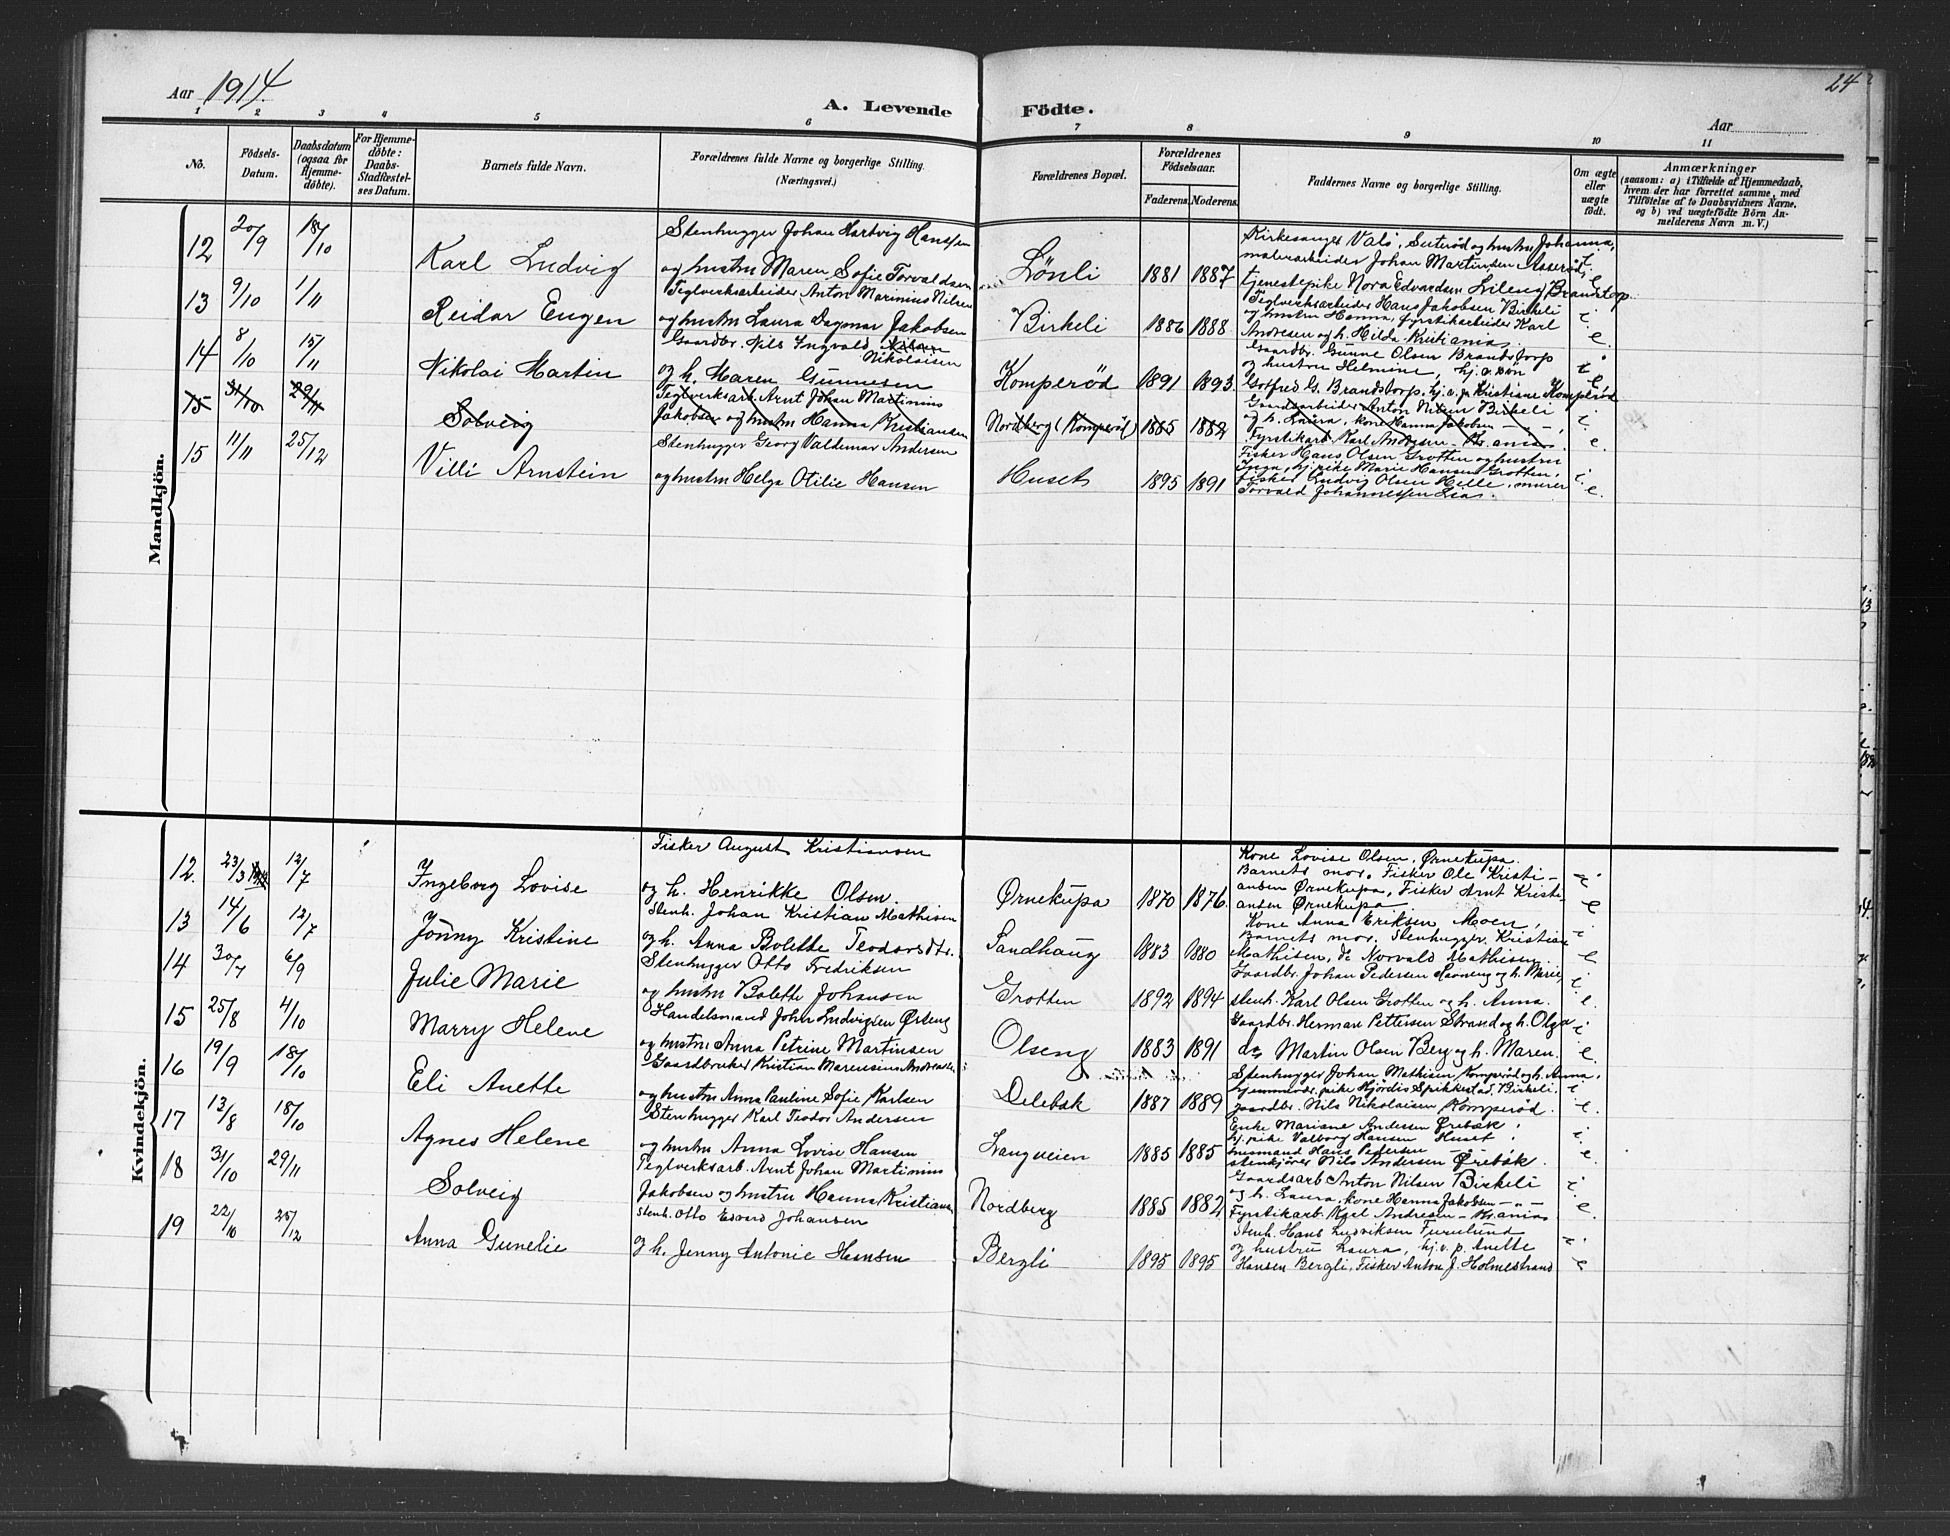 Aar 1914.
A. Levende Födte.
24
Aar
1 2 3 4 5 6 7 8 9 10 11
No.
Födsels-Datum.
Daabsdatum (ogsaa for Hjemme-døbte).
For Hjemme-døbte: Daabs-Stadfæstel-ses Datum.
Barnets fulde Navn.
Forældrenes fulde Navne og borgerlige Stilling.
(Næringsvei.)
Forældrenes Bopæl.
Forældrenes Födselsaar.
Faderens. Moderens.
Faddernes Navne og borgerlige Stilling.
Om ægte eller uægte født.
Anmærkninger
(saasom: a) i Tilfælde af Hjemmedaab, hvem der har forrettet samme, med Tilføielse af to Daabsvidners Navne, og b) ved uægtefödte Börn An-melderens Navn m. V.)
Mandkjön.
12 20/9 18/10 Karl Ludvig
Stenhugger Johan Hartvig Hanssen
og hustru Maren Sofie Torvaldsen
Lönli 1881 1887
Kirkesanger Valö, Seteröd og hustru Johanna,
malerarbeider Johan Martinsen Asseröd,
tjenestepike Nora Edvardsen Lileng, Brandstorp.
e
13 9/10 1/11 Reidar Eugen
Teglverksarbeider Anton Marinius Nilsen
og hustru Laura Dagmar Jakobsen
Birkeli 1886 1888
Teglverksarbeider Hans Jakobsen Birkeli
og hustru Hanna, fyrstikarbeider Karl
Andresen og h. Hilda Kristiania.
e
14 8/10 15/11 Nikolai Martin
Gaardbr. Nils Ingvald Nikolaisen
og h. Maren Gunnesen
Komperød 1891 1893.
Gaardbr. Gunne Olsen Brandstorp
og hustru Helmine,
Gotfred G. Brandstorp, hj. v. p. Kristiane Komperød
e
15 31/10 29/11 Solveig
Teglverksark. Arnt Johan Martinius
Jakobsen og hustru Hanna Kristiansen
Nordberg (Komperöd) 1885 1882
Gaardsarbeider Anton Nilsen Birkeli
og h. Laura, kone Hanna Jakobsen - , - ,
Fyrstikarb. Karl Andresen - Kr.ania.
e.
15 11/11 25/12 Villi Arnstein
Stenhugger Georg Valdemar Andersen
og hustru Helga Otilie Hansen
Huset 1895 1891
Fisker Hans Olsen Grotten og hustru
Inga, hj. pike Marie Hansen Grotten,
fisker Ludvig Olsen Helle, murer
Torvald Johannessen Lia.
e.
Kvindekjön.
12. 23/3 12/7 Ingeborg Lovise
Fisker August Kristiansen
og h. Henrikke Olsen.
Ørnekupa 1870 1876.
Kone Lovise Olsen, Ørnekupa.
Barnets mor, Fisker Ole Kristi-
ansen Ørnekupa, Fisker Arnt Kristi-
ansen Ørnekupa
e
13 14/6 12/7 Jönny Kristine
Stenh. Johan Kristian Mathisen
og h. Anna Bolette Teodorsdtr.
Sandhaug 1883 1880
Kone Anna Eriksen Moen,
Barnets mor. Stenhugger Kristian
Mathisen, do Norvald Mathisen.
e
14 30/7 6/9 Julie Marie
Stenhugger Otto Fredriksen
og hustru Bolette Johansen
Grotten 1892 1894
Gaardbr. Johan Pedersen og h. Marie,
stenh. Karl Olsen Grotten og h. Anna.
e.
15 25/8 4/10 Marry Helene
Handelsmand Johan Ludvigsen Örseng
og hustru Anna Petrine Martinsen
Olseng 1883 1891
Gaardbr. Herman Pettersen Strand og h. Olga
do Martin Olsen Berg og h. Maren.
e.
16 19/9 18/10 Eli Anette
Gaardbruker Kristian Marensius Andresen
og hustru Anna Pauline Sofie Karlsen
Delebäk 1887 1889
Stenhugger Johan Mathisen Komperød og h. Anna,
hjemmev. pike Hjördis Spikkestad, Birkeli.
gaardbr. Nils Nikolaisen Komperød.
e.
17 13/8 18/10 Agnes Helene
Stenhugger Karl Teodor Andersen
og hustru Anna Lovise Hansen
Langveien 1885 1885
Enke Mariane Andersen Ørebæk,
hj. pike Valborg Hansen Huset,
husmand Hans Pedersen
stenkjører Nils Andersen Ørebäk.
e.
18 31/10 29/11 Solveig
Teglverksarb. Arnt Johan Martinius
Jakobsen og hustru Hanna Kristiansen
Nordberg 1885 1882.
Gaardsarb Anton Nilsen Birkeli
og h. Laura, kone Hanna Jakobsen - , -
Fyrstikarb. Karl Andresen - Kr.ania
e.
19 22/10 25/12 Anna Gunelie
Stenh. Otto Edvard Johansen
og h. Jenny Antonie Hansen
Bergli 1895 1895
Stenh. Hans Ludviksen Furulund
og hustru Laura, hj. v. p. Anette
Hansen Bergli, Fisker Anton J. Holmestrand
e